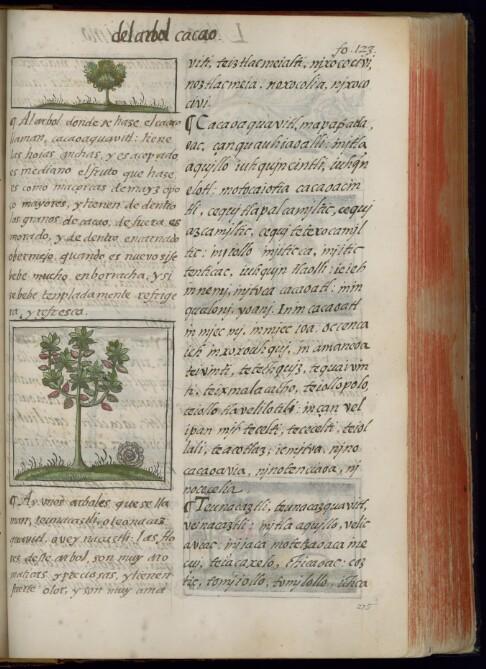 del arbol cacao.
fo. 123.
¶ Al arbol donde se haze el cacao
llaman, cacaoaquavitl: tiene
las hojas anchas, y es acopado,
es mediano el fruto que haze
es como maçorcas de mayz o po
co mayores, y tienen de dentro
los granos de cacao, de fuera es
morado, y de dentro encarnado
o bermejo, quando es nuevo si se
bebe mucho enborracha, y si
se bebe templadamente refrige
ra, y refresca.
¶ Ay unos arboles que se lla
man, teunacaztli, o teonacaz
quavitl, o vey nacaztli: las flo
res deste arbol, son muy aro
maticas y preciosas, y tienen
fuerte olor, y son muy ama
vitl, teiztlacmeialti, nixococivi,
noztlacmeia: noxocolia, nixoco
civi.
¶ Cacaoaquavitl, mapapatla,
çan quauhiaoalli: initla
aquillo iuhquin cintli, iuhqn
elotl: motocaiotia cacaoacin
tli, cequi tlapalcamiltic, cequi
azcamiltic, cequi tetexocamil
tic: in itollo miiticca, in iitic
tenticac, iuhquin tlaolli: ic ieh
in nemi, in itoca cacaoatl: in in
qualoni, yoani. Inin cacaoatl
in miec ni, in miec ioa, occenca
ich in xoxouhqui, in amanooa
teivinti, tetech quiz, tequaivin
ti, teixmalacacho, teiollopolo,
teiollotlaveliloti: in çan vel
ipan mih tecelti, tececelti, teiol
lali, teacotlaz, ic mitoa, nino
cacaoavia, ninotenciaoa, ni
nocecelia
¶ Teunacaztli, teunacazquavitl,
veinacaztli: initla aquillo, velic
aviac: iniiaca motetzaoaca ine
cui, teiacaxelo, chicaoac: coz
tic, tomiollo, tomiollo, ichca
215